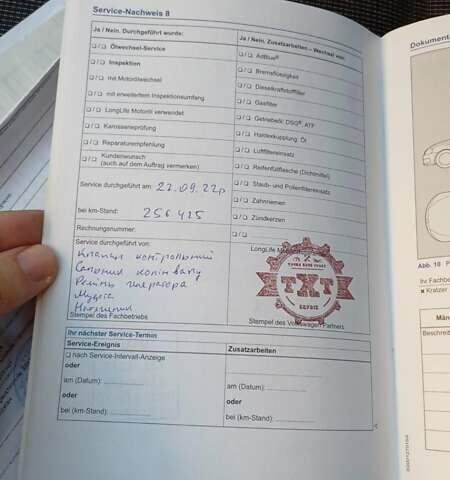 Service-Nachweis 8
Ja / Nein. Durchgeführt wurde:
Ölwechsel-Service
Inspektion
mit Motorölwechsel
mit erweitertem Inspektionsumfang
LongLife Motoröl verwendet
Karosserieprüfung
Reparaturempfehlung
Kundenwunsch
(auch auf dem Auftrag vermerken)
Service durchgeführt am: 22.09.22р
bei km-Stand: 256.425
Rechnungsnummer:
Service durchgeführt von:
Клапан контрольний
Сальник колінвалу
Ремінь генератора
Муфта
Натяжний
Stempel des Fachbetriebs
Ja / Nein. Zusatzarbeiten – Wechsel von:
AdBlue®
Bremsflüssigkeit
Dieselkraftstofffilter
Gasfilter
Getriebeöl: DSG®, ATF
Haldexkupplung: Öl
Luftfiltereinsatz
Reifenfüllflasche (Dichtmittel)
Staub- und Pollenfiltereinsatz
Zahnriemen
Zündkerzen
LongLife M
ТХТ
Stempel des Volkswagen Partners
Ihr nächster Service-Termin
Service-Ereignis
nach Service-Intervall-Anzeige
oder
am (Datum):
oder
bei (km-Stand):
Zusatzarbeiten
am (Datum):
oder
bei (km-Stand):
Dokument
Abb. 10
Ihr Fachbe
Kratzer
Män
Beschreib